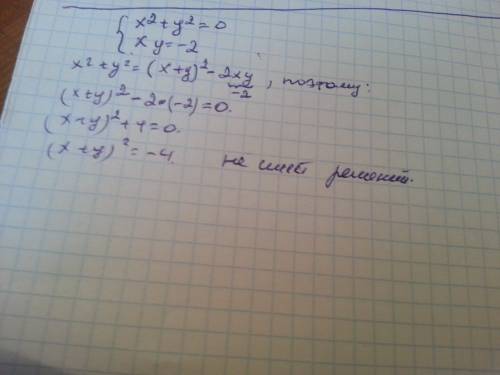 { x² + y² = 0
xy = -2
x² + y² = (x+y)² - 2xy, поэтому:
-2
(x+y)² - 2•(-2) = 0.
(x+y)² + 4 = 0.
(x+y)² = -4. не имеет решений.